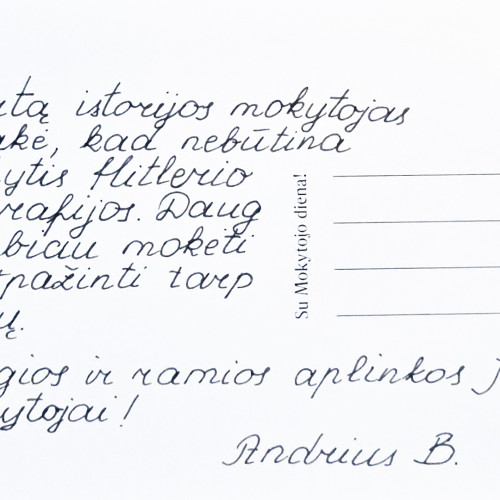 rtą istorijos mokytojas
akė, kad nebūtina
ytis Hitlerio
rafijos. Daug
biau mokėti
tpažinti tarp
ų.
gios ir ramios aplinkos J
ytojai!
Andrius B.
Su Mokytojo diena!